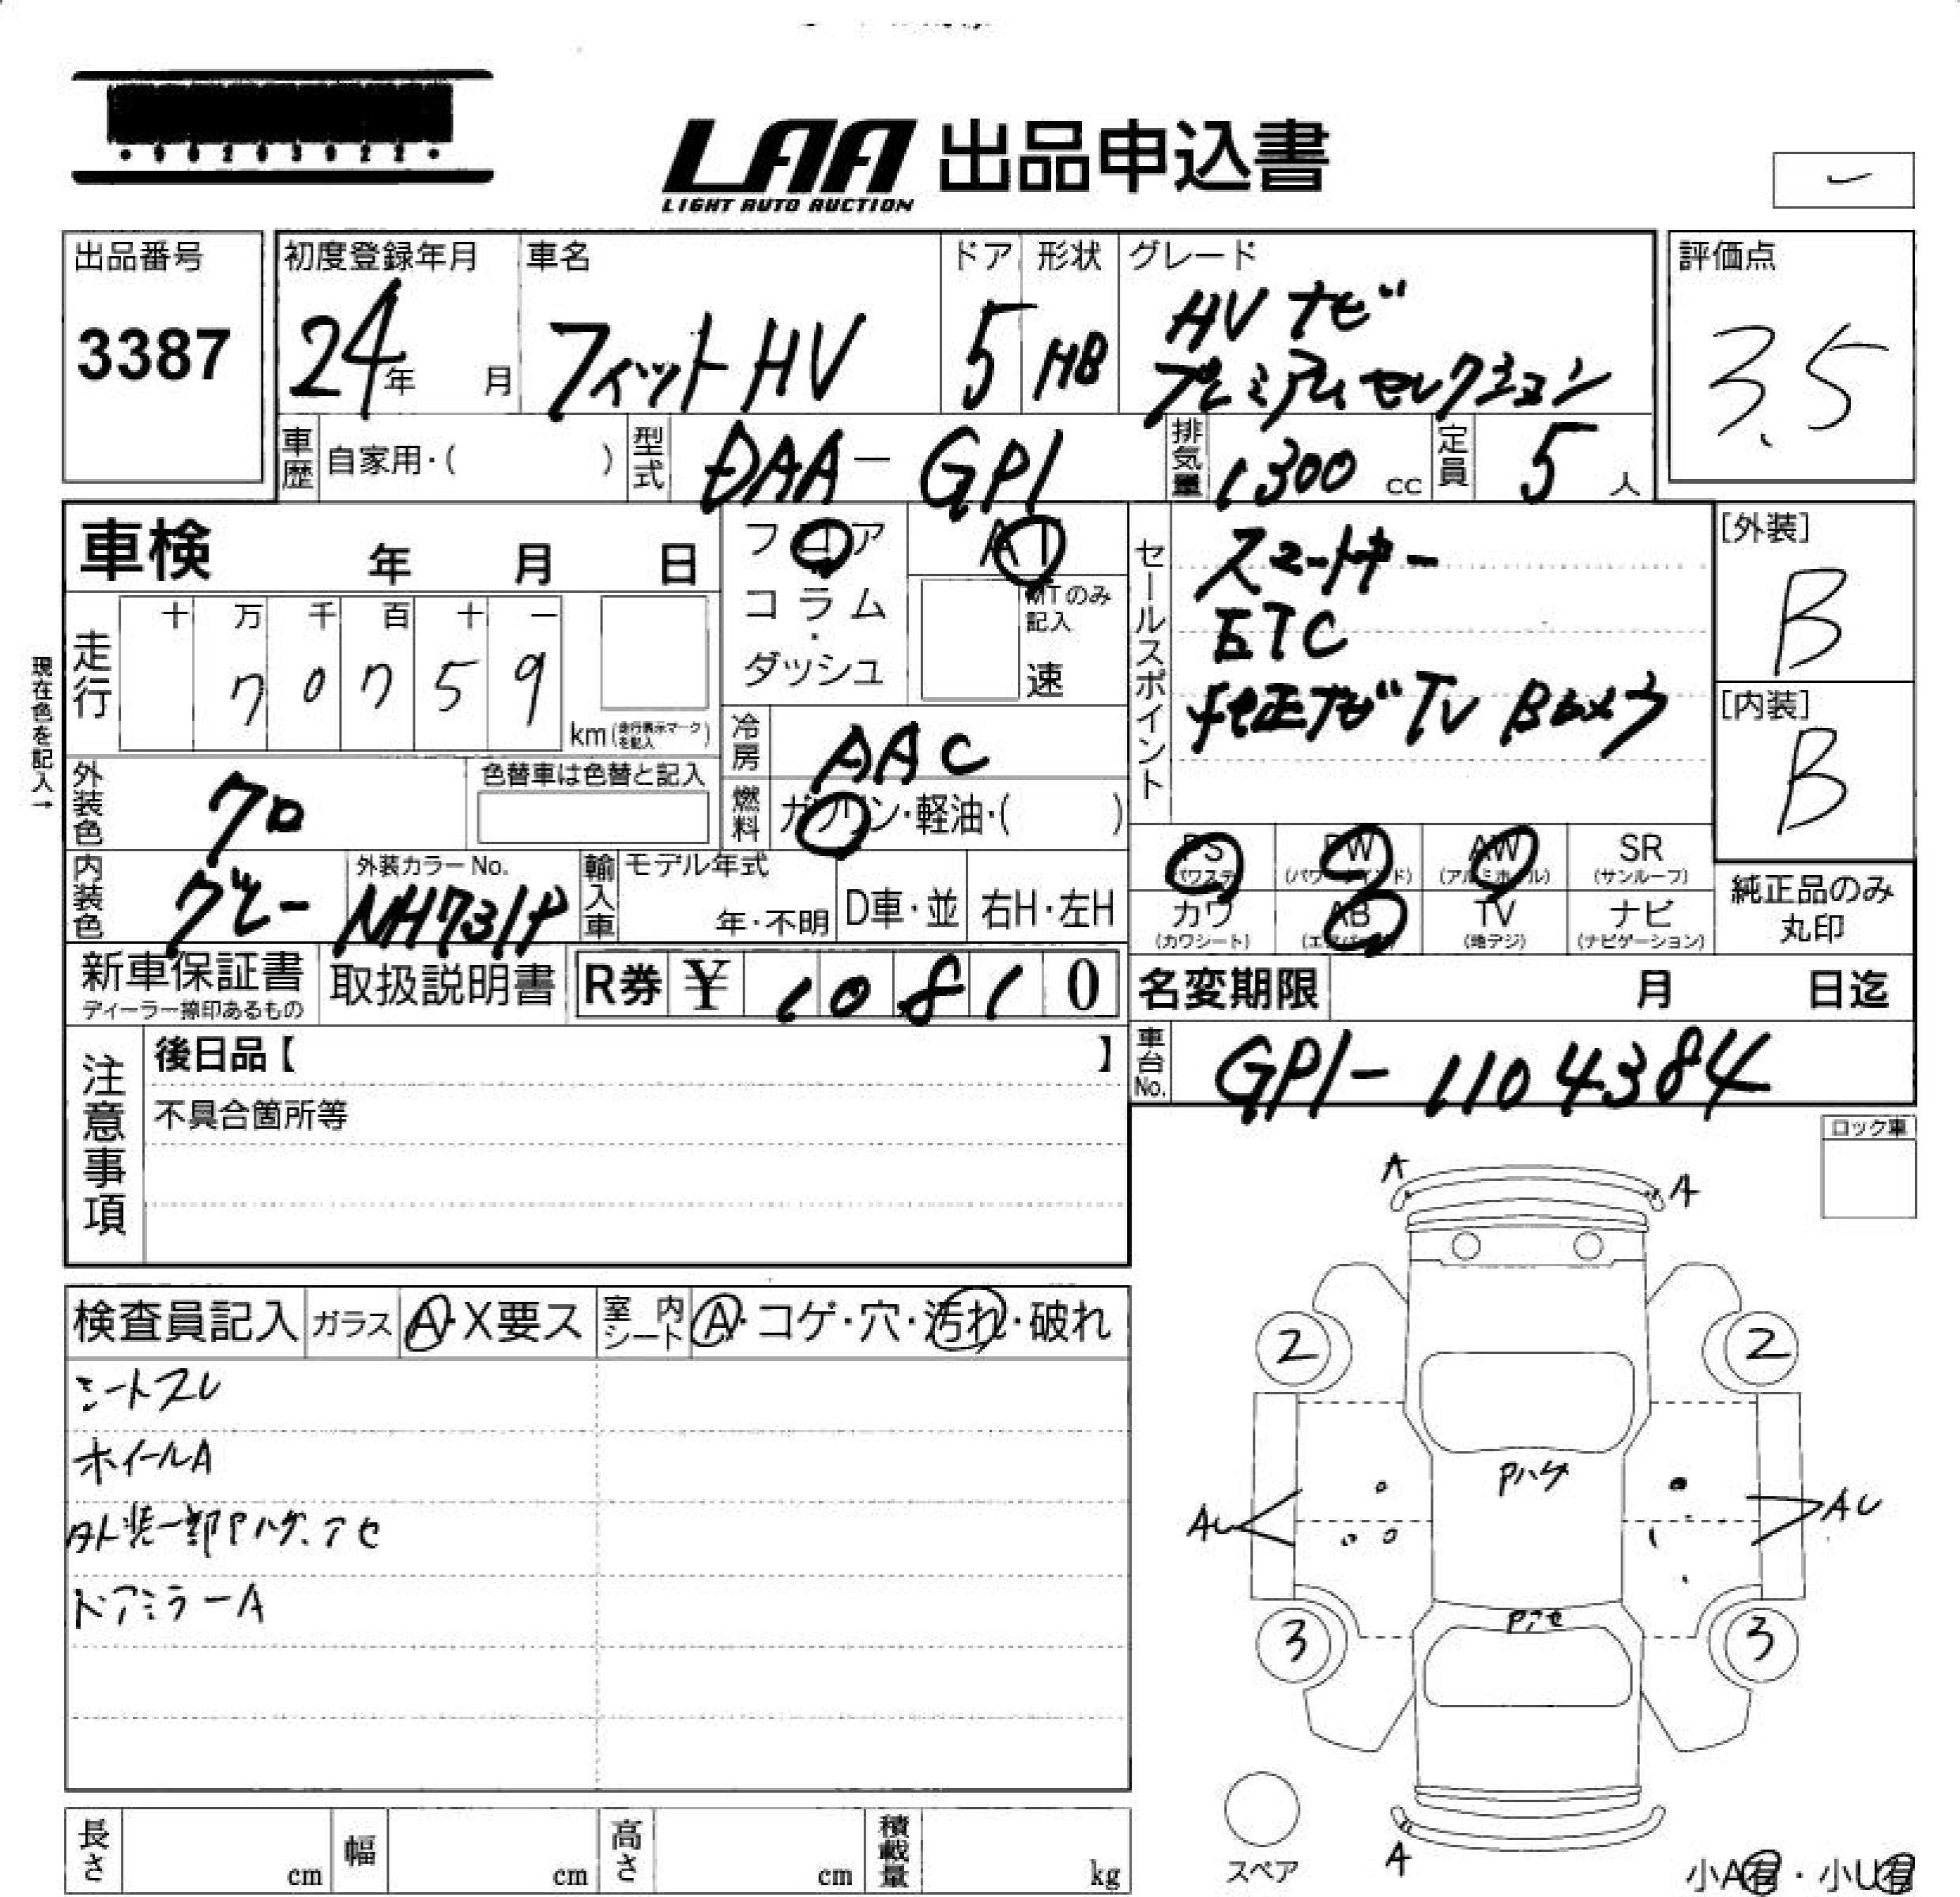 LAA 出品申込書
LIGHT AUTO AUCTION
出品番号
3387
初度登録年月
24年 月
車名
フィット HV
ドア
5
形状
HB
グレード
HV ナビ
プレミアムセレクション
評価点
3.5
車歴
自家用・( )
型式
DAA-GP1
排気量
1300 cc
定員
5 人
車検 年 月 日
フロア
コラム
・
ダッシュ
AT
MTのみ
記入
速
セールスポイント
スマートキー
ETC
純正ナビ TV Bカメラ
[外装]
B
[内装]
B
現在色を記入→
走行
十 万 千 百 十 一
7 0 7 5 9
km (走行表示マークを記入)
冷房
AAC
燃料
ガソリン・軽油・( )
外装色
クロ
色替車は色替と記入
内装色
グレー
外装カラーNo.
NH731P
輸入車
モデル年式
年・不明
D車・並
右H・左H
PS
(パワステ)
PW
(パワーウインド)
AW
(アルミホイル)
SR
(サンルーフ)
カワ
(カワシート)
AB
(エアバッグ)
TV
(地デジ)
ナビ
(ナビゲーション)
純正品のみ
丸印
新車保証書
ディーラー捺印あるもの
取扱説明書
R券 ¥ 1 0 8 1 0
名変期限 月 日迄
注意事項
後日品【 】
不具合箇所等
車台No.
GP1-1104384
ロック車
検査員記入
ガラス
A・X要ス
室内シート
A・コゲ・穴・汚れ・破れ
シートスレ
ホイールA
外装一部Pハゲ、アセ
ドアミラーA
A
A
2
2
Pハゲ
AU
AU
Pアセ
3
3
A
スペア
小A有・小U有
長さ cm
幅 cm
高さ cm
積載量 kg